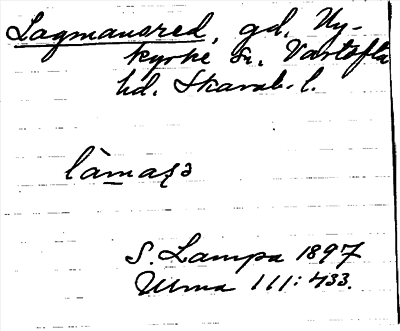 Lagmansred, gd, Ny-
kyrke sn, Vartofta
hd, Skarab. l.
làmaʂə
S. Lampa 1897
Ulma 111: 433.